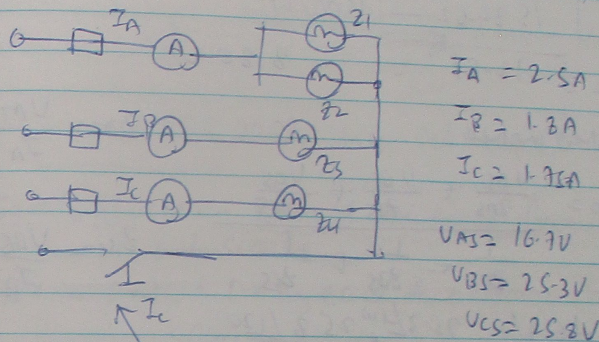 IA
A
Z1
Z2
IB
A
Z3
IC
A
Z4
IC
IA = 2.5A
IB = 1.8A
IC = 1.75A
VAS = 16.7V
VBS = 25.3V
VCS = 25.8V